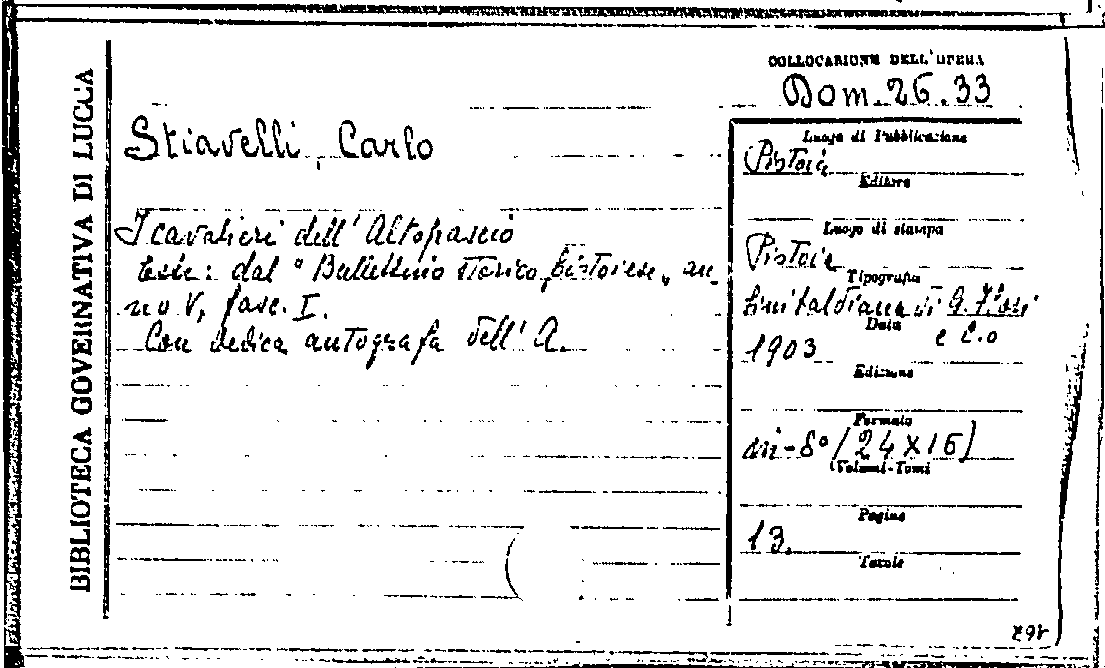 BIBLIOTECA GOVERNATIVA DI LUCCA
COLLOCAZIONE DELL'OPERA
Dom. 26. 33
Stiavelli, Carlo
I cavalieri dell'Altopascio
Estr: dal "Bullettino storico pistoiese„ an-
no V, fasc. I.
Con dedica autografa dell'A.
Luogo di Pubblicazione
Pistoia
Editore
Luogo di stampa
Pistoia
Tipografia
Sinibaldiana di G. Flori
e C.o
Data
1903
Edizione
Formato
in-8° (24x16)
Volumi-Tomi
Pagine
13.
Tavole